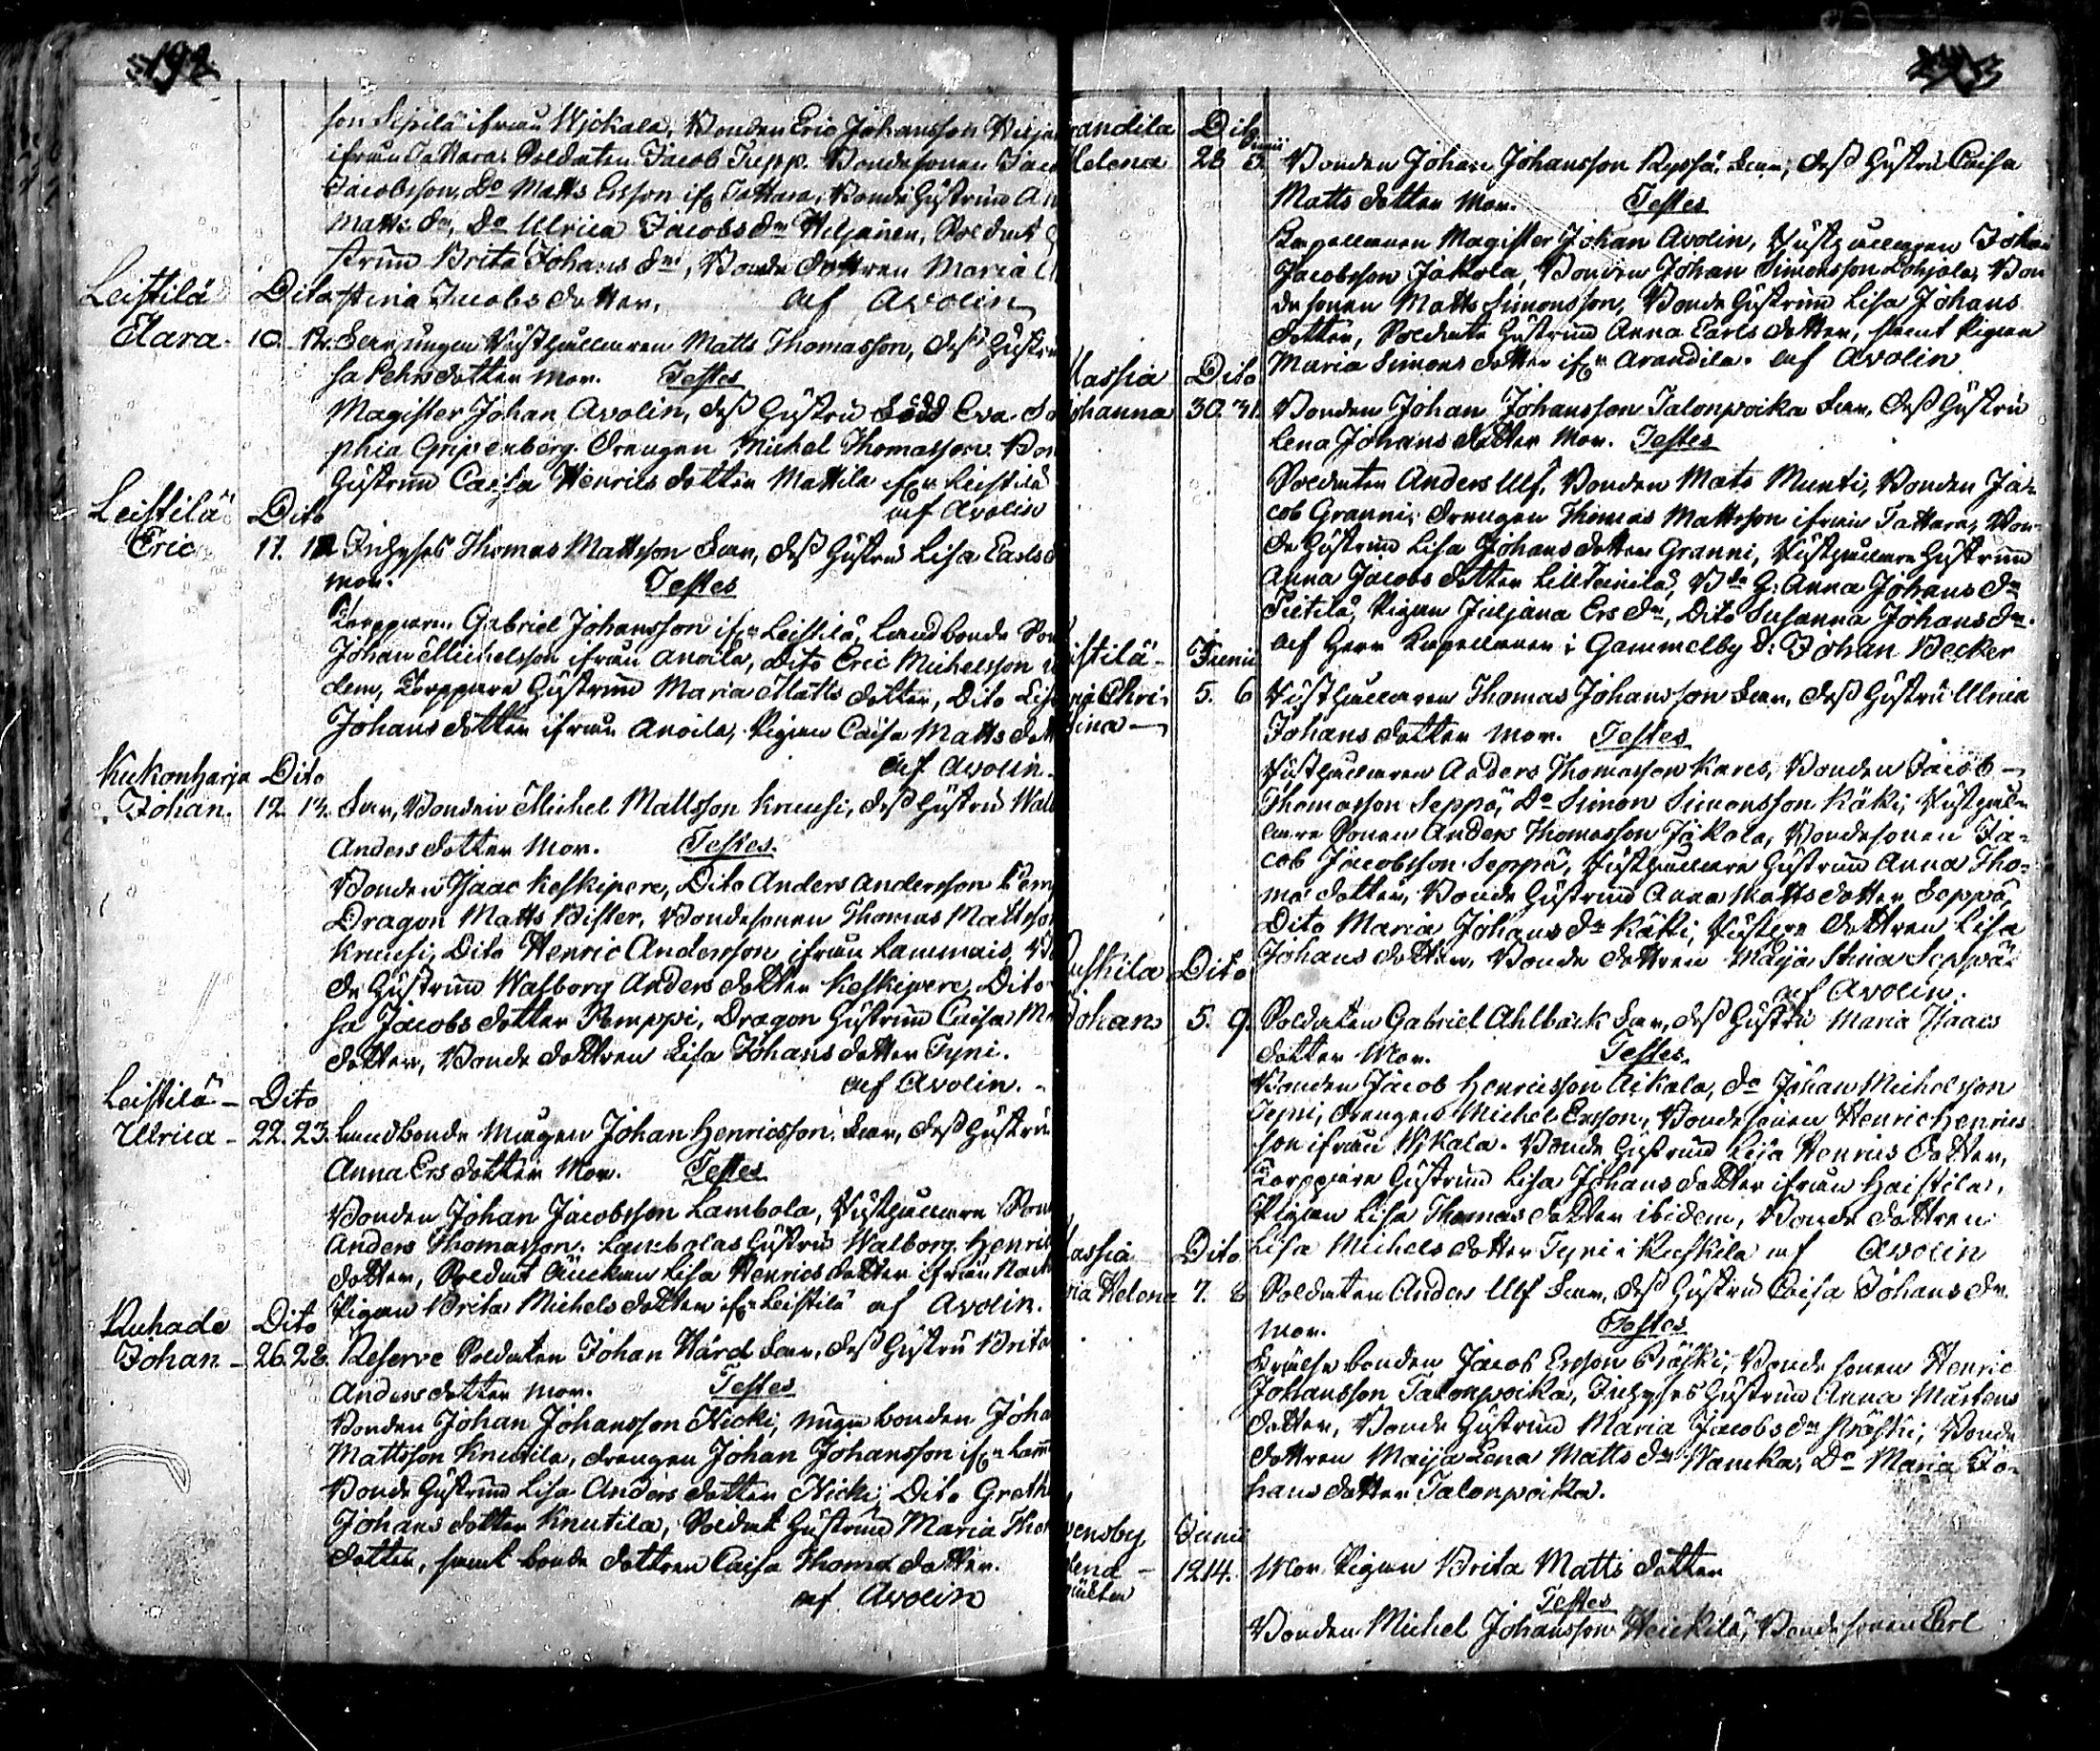 192
son Sipilä ifrån Wjckala, Bonden Eric Johansson Wilja
ifrån Tattara. Soldaten Jacob Trepp. Bondesonen Jac
Jacobsson, Do Matts Ersson ifn Tattara, Bonde Hustrun An
Matts dr, Do Ulrica Jacobs dr Wiljanen, Soldat
strun Brita Johans dr, Bonde dottren Maria
Leistilä Dito stina Jacobs dotter. af Avolin
Clara. 10. 12. Far ungen Inhysesmannen Matts Thomasson, dess Hustru
sa Pehrs dotter Mor. Testes
Magister Johan Avolin, dess Hustru Född Eva So
phia Gripenberg. Drengen Michel Thomasson. Bon
Hustrun Caisa Henrics dotter Mattila ifn Leistilä
Leistilä Dito af Avolin
Eric 11. 12. Inhyses Thomas Mattsson Far, dess Hustru Lisa Carls d
Mor. Testes
Torpparen Gabriel Johansson ifn Leistilä, Landbonde Son
Johan Michelsson ifrån Anoila, Dito Eric Michelsson i
dem, Torppare Hustrun Maria Matts dotter, Dito Lisa
Johans dotter ifrån Anoila, Pigan Caisa Matts dott
af Avolin.
Kukonharja Dito
Johan. 12. 13. Far, Bonden Michel Mattsson Krausi, dess Hustru Wal
Anders dotter Mor. Testes.
Bonden Isaac Keskipere, Dito Anders Andersson Pemp
Dragon Matts Bister, Bondesonen Thomas Mattsson
Krausi, Dito Henric Andersson ifrån Lammais, Bo
de Hustrun Walborg Anders dotter Keskipere, Dito
sa Jacobs dotter Pemppi, Dragon Hustrun Caisa Ma
dotter, Bonde dottren Lisa Johans dotter Tyni.
af Avolin. -
Leistilä - Dito
Ulrica - 22. 23. Landbonde Mågen Johan Henricsson. Far, dess Hustru
Anna Ers dotter Mor. Testes
Bonden Johan Jacobsson Lambola, Son
Anders Thomasson. Lambolas Hustru Walborg Henrics
dotter, Soldat Änckan Lisa Henrics dotter ifrån
Pigan Brita Michels dotter ifn Leistilä af Avolin.
Ruhade Dito
Johan - 26. 28. Reserve Soldaten Johan Hård Far, dess Hustru Brita
Anders dotter Mor. Testes
Bonden Johan Johansson Hicki, unge bonden Joha
Mattsson Knutila, drengen Johan Johansson ifn Lam
Bonde Hustrun Lisa Anders dotter Hicki, Dito Greth
Johans dotter Knutila, Soldat Hustrun Maria Tho
dotter, samt bonde dottren Caisa Thomæ dotter.
af Avolin
randila Dito
Junii
Helena 28 3. Bonden Johan Johansson Ryssä Far, dess Hustru Caisa
Matts dotter Mor. Testes
Capellanen Magister Johan Avolin, Johan
Jacobsson Jakola, Bonden Johan Simonsson Lohjola, Bon
de sonen Matts Simonsson, Bonde Hustrun Lisa Johans
dotter, Soldate Hustrun Anna Carls dotter, samt Pigan
Maria Simons dotter ifn Arandila. af Avolin
assia Dito
ohanna 30. 31. Bonden Johan Johansson Talonpoika Far, dess Hustru
Lena Johans dotter Mor. Testes
Soldaten Anders Ulf, Bonden Mats Munti, Bonden Ja-
cob Granni, Drengen Thomas Mattsson ifrån Tattara, Bon
de Hustrun Lisa Johans dotter Granni, Hustrun
Anna Jacobs dotter Lill Teinilä, Bde H: Anna Johans dr
Tietilä, Pigan Juljana Ers dr, Dito Susanna Johans dr.
istilä - Junii af Herr Capellanen i Gammelby D: Johan Becker
ia Chri- 5. 6 Thomas Johansson Far, dess Hustru Ulrica
tina - Johans dotter Mor. Testes
Anders Thomasson Kares, Bonden Jacob -
Thomasson Seppä, Do Simon Simonsson Käki,
Sonen Anders Thomasson Jakola, Bondesonen Ja-
cob Jacobsson Seppä, Hustrun Anna Tho-
mæ dotter, Bonde Hustrun Anna Matts dotter Seppä,
Dito Maria Johans dr Käki, dottren Lisa
uskila Dito Johans dotter, Bonde dottren Maija Stina Seppä
af Avolin.
Johan 5. 9. Soldaten Gabriel Ahlbäck Far, dess Hustru Maria Isaacs
dotter Mor. Testes
Bonden Jacob Henricsson Aikala, do Johan Michelsson
Tyni, drengen Michel Ersson, Bondesonen Henric Henrics
son ifrån Wikala. Bonde Hustrun Lisa Henrics dotter,
Torppare Hustrun Lisa Johans dotter ifrån Haistila,
Pigan Lisa Thomas dotter ibidem, Bonde dottren
assia Dito Lisa Michels dotter Tyni i Ruskila af Avolin
ria Helena 7. 8 Soldaten Anders Ulf Far, dess Hustru Caisa Johans dr
Mor. Testes
Frälse bonden Jacob Ersson Präski, Bonde sonen Henric
Johansson Talonpoika, Inhyses Hustrun Anna Mårtens
dotter, Bonde Hustrun Maria Jacobs dr Präski, Bonde
dottren Maija Lena Matts dr Wanika, Do Maria Jo-
hans dotter Talonpoika.
vensby Junii
lena - 12. 14. Mor Pigan Brita Matts dotter
Testes
Bonden Michel Johansson Heickilä, Bondesonen Carl